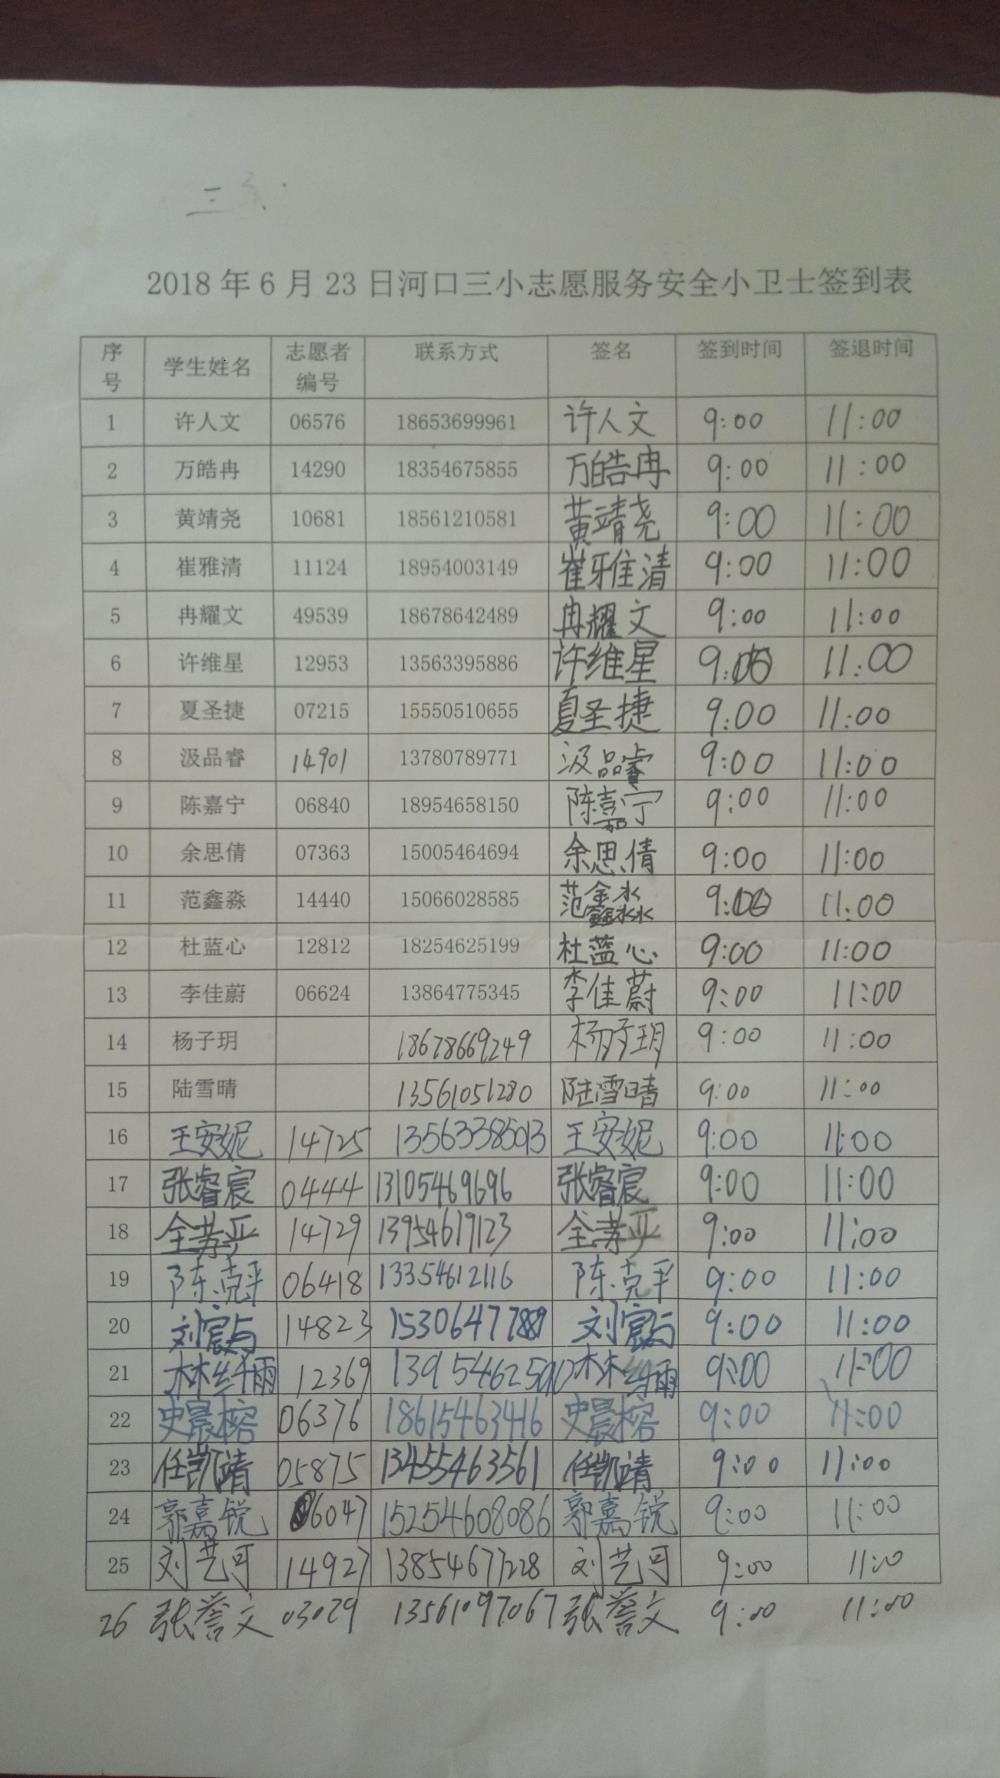 三
2018年6月23日河口三小志愿服务安全小卫士签到表
序号 学生姓名 志愿者编号 联系方式 签名 签到时间 签退时间
1 许人文 06576 18653699961 许人文 9:00 11:00
2 万皓冉 14290 18354675855 万皓冉 9:00 11:00
3 黄靖尧 10681 18561210581 黄靖尧 9:00 11:00
4 崔雅清 11124 18954003149 崔雅清 9:00 11:00
5 冉耀文 49539 18678642489 冉耀文 9:00 11:00
6 许维星 12953 13563395886 许维星 9:00 11:00
7 夏圣捷 07215 15550510655 夏圣捷 9:00 11:00
8 汲品睿 14901 13780789771 汲品睿 9:00 11:00
9 陈嘉宁 06840 18954658150 陈嘉宁 9:00 11:00
10 余思倩 07363 15005464694 余思倩 9:00 11:00
11 范鑫淼 14440 15066028585 范鑫淼 9:00 11:00
12 杜蓝心 12812 18254625199 杜蓝心 9:00 11:00
13 李佳蔚 06624 13864775345 李佳蔚 9:00 11:00
14 杨子玥 18678669249 杨子玥 9:00 11:00
15 陆雪晴 13561051280 陆雪晴 9:00 11:00
16 王安妮 14725 13563385013 王安妮 9:00 11:00
17 张睿宸 0444 13105469696 张睿宸 9:00 11:00
18 14729 13954619123 9:00 11:00
19 陈克平 06418 13354612116 陈克平 9:00 11:00
20 刘宸与 14823 刘宸与 9:00 11:00
21 12369 9:00 11:00
22 史晨榕 06376 18615463416 史晨榕 9:00 11:00
23 任凯靖 05875 13455463561 任凯靖 9:00 11:00
24 郭嘉锐 06047 15254608086 郭嘉锐 9:00 11:00
25 刘艺可 14927 13854677228 刘艺可 9:00 11:0
26 张誉文 03029 13561097067 张誉文 9:00 11:00